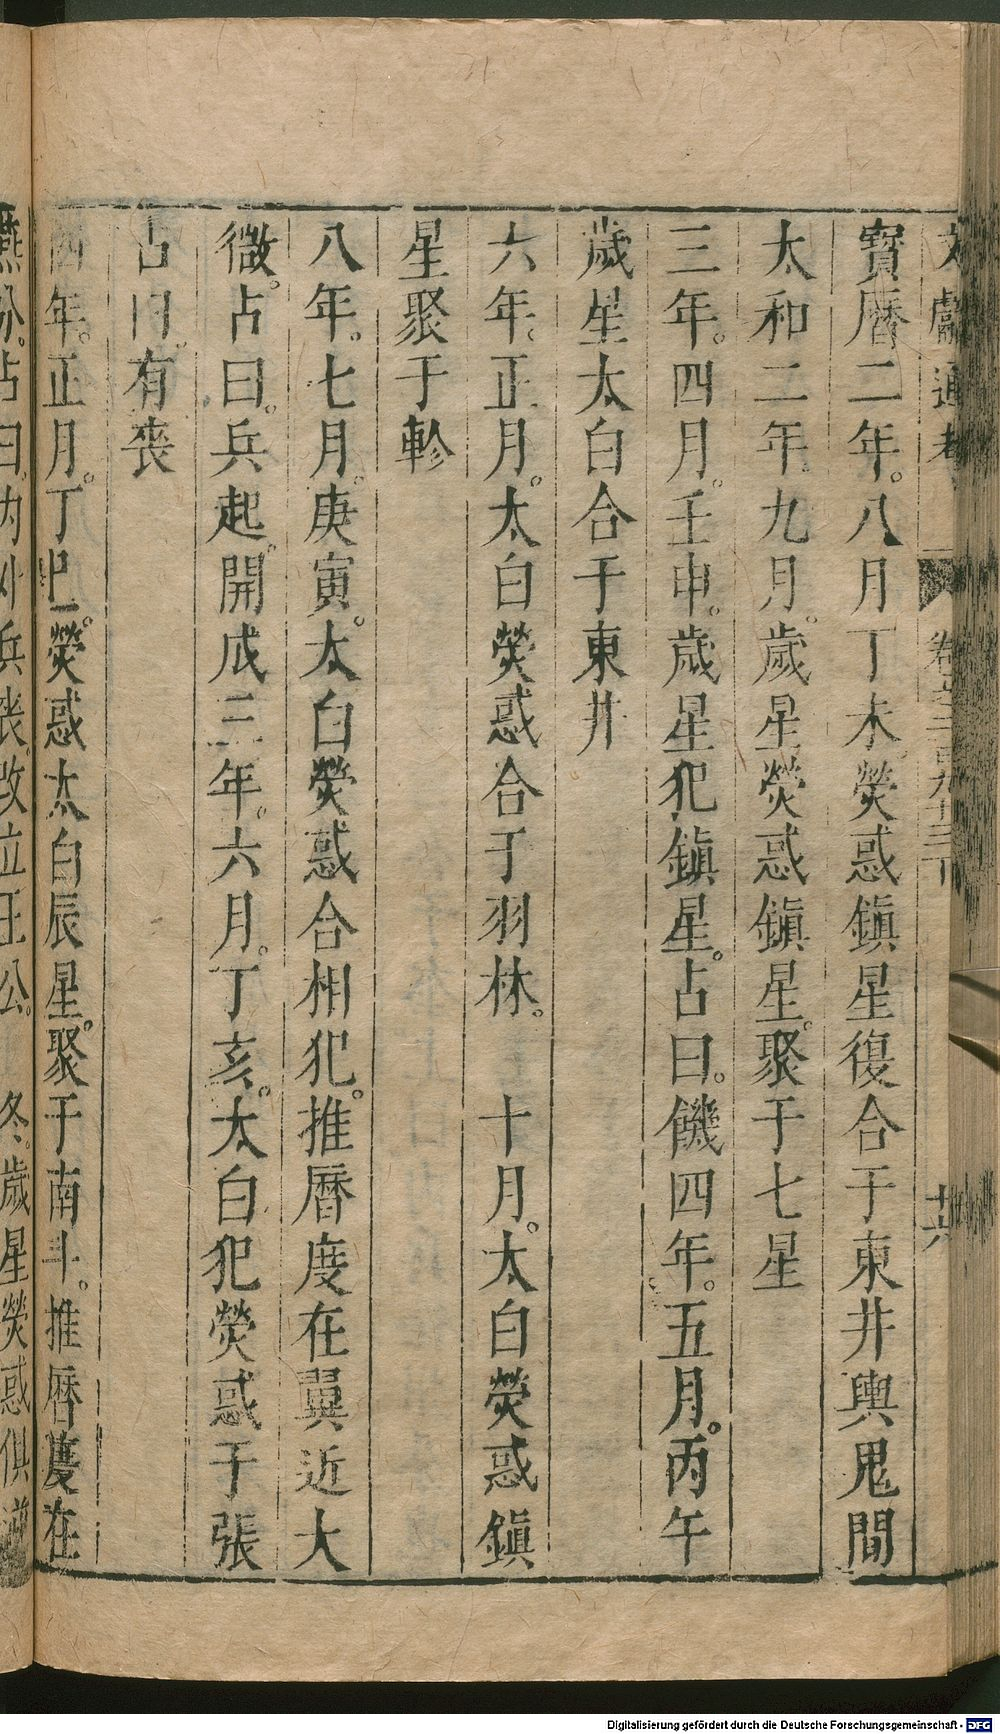 文獻通考 卷之二百九十三下 十六
寶曆二年。八月丁未。熒惑鎮星復合于東井輿鬼間
太和二年九月。歲星熒惑鎮星。聚于七星
三年。四月。壬申。歲星犯鎮星。占曰。饑四年。五月。丙午
歲星太白合于東井
六年。正月。太白熒惑合于羽林。 十月。太白熒惑鎮
星聚于軫
八年。七月。庚寅。太白熒惑合相犯。推曆度在翼近大
微。占曰。兵起。開成三年。六月。丁亥。太白犯熒惑于張
占曰。有喪
四年。正月。丁巳。熒惑太白辰星。聚于南斗。推曆度在
燕分。占曰。內外兵喪。改立王公。 冬。歲星熒惑俱逆
Digitalisierung gefördert durch die Deutsche Forschungsgemeinschaft - DFG